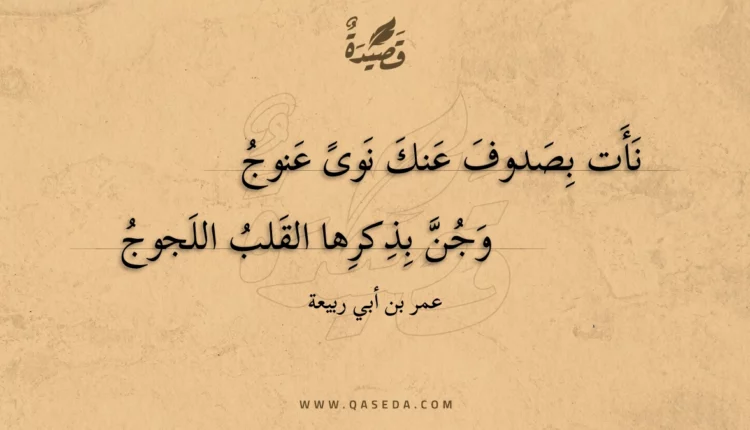 قَصيدَةٌ
نَأَت بِصَدوفَ عَنكَ نَوىً عَنوجُ
وَجُنَّ بِذِكرِها القَلبُ اللَجوجُ
عمر بن أبي ربيعة
WWW.QASEDA.COM